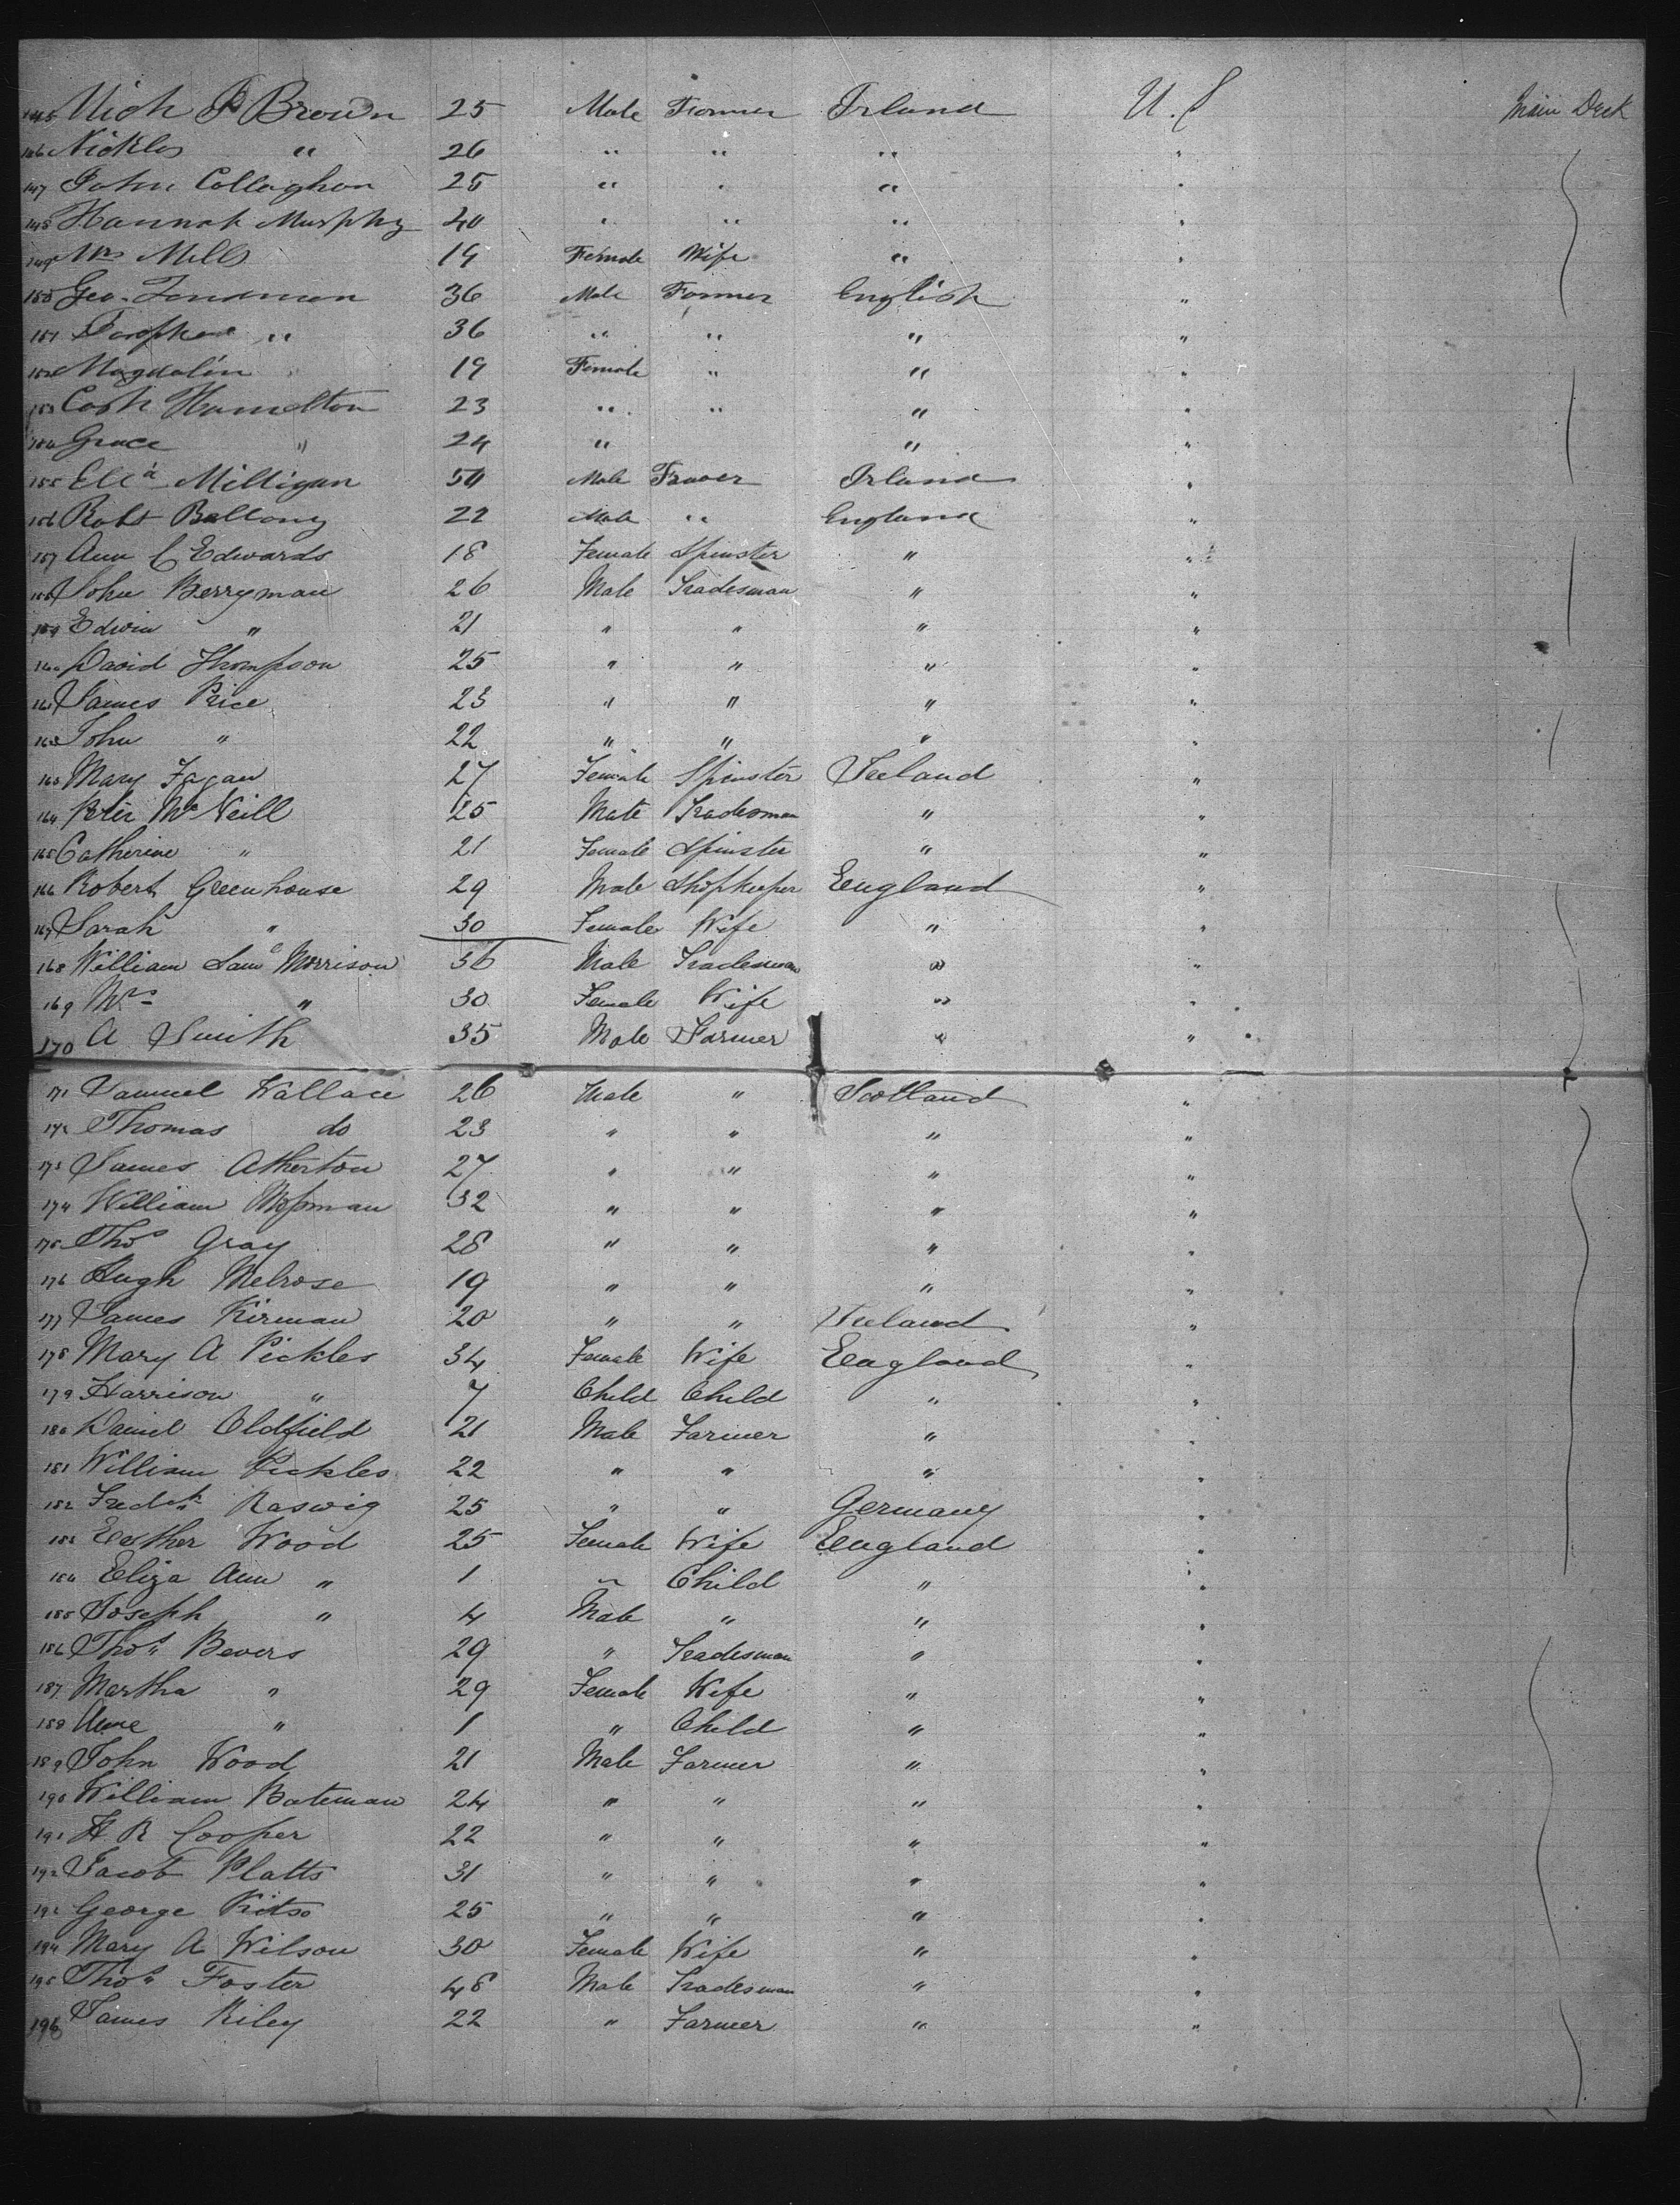 145 Mich P Brown 25 Male Farmer Irland U.S Main Deck
146 Nickles " 26 " " " "
147 John Collaghan 25 " " " "
148 Hannah Murphy 40 " " " "
149 Mrs Mills 19 Female Wife " "
150 Geo. 36 Male Farmer English "
151 " 36 " " " "
152 Magdalin " 19 Female " " "
153 Hamelton 23 " " " "
154 Grace " 24 " " "
155 Milligan 50 Male Irland "
156 Robt 22 Male " England "
157 Ann C Edwards 18 Female Spinster " "
158 John Berryman 26 Male Tradesman " "
159 Edwin " 21 " " " "
160 David Thompson 25 " " " "
161 James Price 23 " " " "
162 John " 22 " " " "
163 Mary Fagan 27 Female Spinster Ireland "
164 Peter McNeill 25 Male Tradesman " "
165 Catherine " 21 Female Spinster " "
166 Robert Greenhouse 29 Male Shopkeeper England "
167 Sarah " 30 Female Wife " "
168 William Saml Morrison 36 Male Tradesman " "
169 Mrs " 30 Female Wife " "
170 A Smith 35 Male Farmer " "
171 Samuel Wallace 26 Male " Scotland "
172 Thomas do 23 " " " "
173 James Atherton 27 " " " "
174 William Mossman 32 " " " "
175 Thos Gray 28 " " " "
176 Hugh Melrose 19 " " " "
177 James Kirman 20 " " Ireland "
178 Mary A Pickles 34 Female Wife England "
179 Harrison " 7 Child Child " "
180 Daniel Oldfield 21 Male Farmer " "
181 William Pickles 22 " " " "
182 Fredk Raswig 25 " " Germany "
183 Esther Wood 25 Female Wife England "
184 Eliza Ann " 1 " Child " "
185 Joseph " 4 Male " " "
186 Thos Bevers 29 " Tradesman " "
187 Martha " 29 Female Wife " "
188 Anne " 1 " Child " "
189 John Wood 21 Male Farmer " "
190 William Bateman 24 " " " "
191 H R Cooper 22 " " " "
192 Jacob Platts 31 " " " "
193 George Kitso 25 " " " "
194 Mary A Wilson 30 Female Wife " "
195 Thos Foster 48 Male Tradesman " "
196 James Riley 22 " Farmer " "